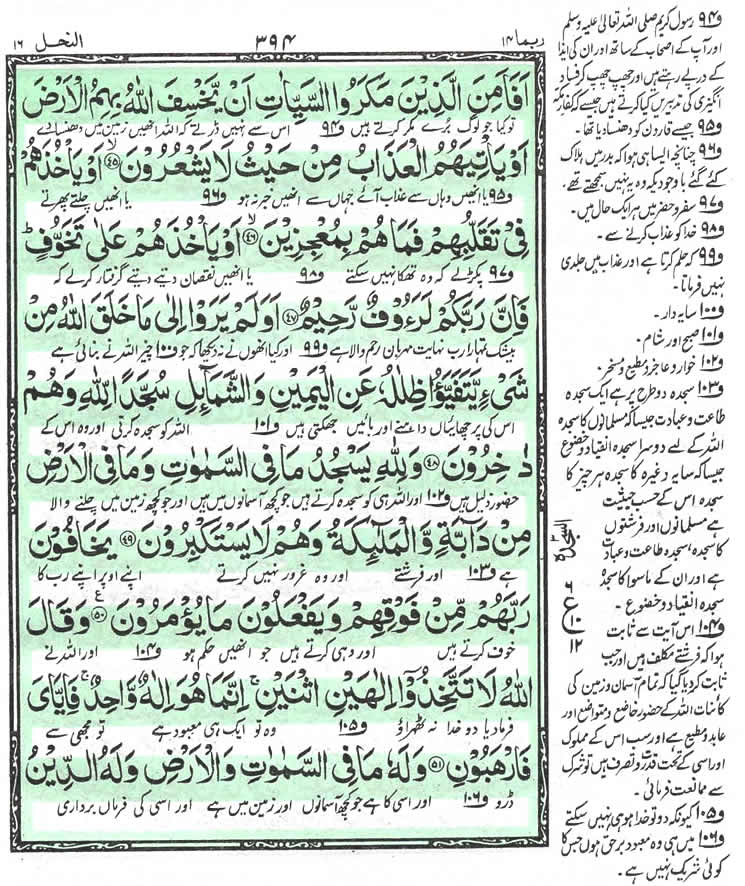 ربما ۱۴
۳۹۴
النحل ۱۶
اَفَاَمِنَ الَّذِيْنَ مَكَرُوا السَّيِّاٰتِ اَنْ يَّخْسِفَ اللّٰهُ بِهِمُ الْاَرْضَ
تو کیا جو لوگ بڑے مکر کرتے ہیں ف۹۴ اس سے نہیں ڈرتے کہ اللہ انھیں زمین میں دھنسا دے
اَوْ يَاْتِيَهُمُ الْعَذَابُ مِنْ حَيْثُ لَا يَشْعُرُوْنَ ﴿۴۵﴾ اَوْ يَاْخُذَهُمْ
ف۹۵ یا انھیں وہاں سے عذاب آئے جہاں سے انھیں خبر نہ ہو ف۹۶ یا انھیں چلتے پھرتے
فِيْ تَقَلُّبِهِمْ فَمَا هُمْ بِمُعْجِزِيْنَ ﴿۴۶﴾ اَوْ يَاْخُذَهُمْ عَلٰى تَخَوُّفٍ
ف۹۷ پکڑ لے کہ وہ تھکا نہیں سکتے ف۹۸ یا انھیں نقصان دیتے دیتے گرفتار کر لے کہ
فَاِنَّ رَبَّكُمْ لَرَءُوْفٌ رَّحِيْمٌ ﴿۴۷﴾ اَوَلَمْ يَرَوْا اِلٰى مَا خَلَقَ اللّٰهُ مِنْ
بیشک تمہارا رب نہایت مہربان رحم والا ہے ف۹۹ اور کیا انھوں نے نہ دیکھا کہ جو ف۱۰۰ چیز اللہ نے بنائی ہے
شَيْءٍ يَّتَفَيَّؤُا ظِلٰلُهٗ عَنِ الْيَمِيْنِ وَالشَّمَآئِلِ سُجَّدًا لِّلّٰهِ وَهُمْ
اس کی پرچھائیاں داہنے اور بائیں جھکتی ہیں ف۱۰۱ اللہ کو سجدہ کرتی اور وہ اس کے
دٰخِرُوْنَ ﴿۴۸﴾ وَلِلّٰهِ يَسْجُدُ مَا فِي السَّمٰوٰتِ وَمَا فِي الْاَرْضِ
حضور ذلیل ہیں ف۱۰۲ اور اللہ ہی کو سجدہ کرتے ہیں جو کچھ آسمانوں میں ہیں اور جو کچھ زمین میں چلنے والا
مِنْ دَآبَّةٍ وَّالْمَلٰٓئِكَةُ وَهُمْ لَا يَسْتَكْبِرُوْنَ ﴿۴۹﴾ يَخَافُوْنَ
ہے ف۱۰۳ اور فرشتے اور وہ غرور نہیں کرتے اپنے اوپر اپنے رب کا
رَبَّهُمْ مِّنْ فَوْقِهِمْ وَيَفْعَلُوْنَ مَا يُؤْمَرُوْنَ ﴿۵۰﴾ وَقَالَ
خوف کرتے ہیں اور وہی کرتے ہیں جو انھیں حکم ہو ف۱۰۴ اور اللہ نے
اللّٰهُ لَا تَتَّخِذُوْٓا اِلٰهَيْنِ اثْنَيْنِ اِنَّمَا هُوَ اِلٰهٌ وَّاحِدٌ فَاِيَّايَ
فرما دیا دو خدا نہ ٹھہراؤ ف۱۰۵ وہ تو ایک ہی معبود ہے تو مجھی سے
فَارْهَبُوْنِ ﴿۵۱﴾ وَلَهٗ مَا فِي السَّمٰوٰتِ وَالْاَرْضِ وَلَهُ الدِّيْنُ
ڈرو ف۱۰۶ اور اسی کا ہے جو کچھ آسمانوں اور زمین میں ہے اور اسی کی فرماں برداری
السجدة ۳
۶
ع
۱۰
۱۲
ف۹۴ رسول کریم صلی اللہ تعالیٰ علیہ وسلم
اور آپ کے اصحاب کے ساتھ اور ان کی ایذا
کے درپے رہتے ہیں اور چھپ چھپ کر فساد
انگیزی کی تدبیریں کیا کرتے ہیں جیسے کہ کفار مکہ
ف۹۵ جیسے قارون کو دھنسا دیا تھا۔
ف۹۶ چنانچہ ایسا ہی ہوا کہ بدر میں ہلاک
کئے گئے باوجودیکہ وہ یہ نہیں سمجھتے تھے۔
ف۹۷ سفر و حضر میں ہر ایک حال میں۔
ف۹۸ خدا کو عذاب کرنے سے۔
ف۹۹ کہ حلم کرتا ہے اور عذاب میں جلدی
نہیں فرماتا۔
ف۱۰۰ سایہ دار۔
ف۱۰۱ صبح اور شام۔
ف۱۰۲ خوار و عاجز و مطیع و مسخر۔
ف۱۰۳ سجدہ دو طرح پر ہے ایک سجدہ
طاعت و عبادت جیسا کہ مسلمانوں کا سجدہ
اللہ کے لیے دوسرا سجدہ انقیاد و خضوع
جیسا کہ سایہ وغیرہ کا سجدہ ہر چیز کا
سجدہ اس کے حسب حیثیت
ہے مسلمانوں اور فرشتوں
کا سجدہ، سجدہ طاعت و عبادت
ہے اور ان کے ماسوا کا سجدہ
سجدہ انقیاد و خضوع۔
ف۱۰۴ اس آیت سے ثابت
ہوا کہ فرشتے مکلف ہیں اور جب
ثابت کر دیا گیا کہ تمام آسمان و زمین کی
کائنات اللہ کے حضور خاضع و متواضع اور
عابد و مطیع ہے اور سب اس کے مملوک
اور اسی کے تحت قدرت و تصرف ہیں تو شرک
سے ممانعت فرمائی۔
ف۱۰۵ کیونکہ دو تو خدا ہو ہی نہیں سکتے
ف۱۰۶ میں ہی وہ معبود برحق ہوں جس کا
کوئی شریک نہیں ہے۔